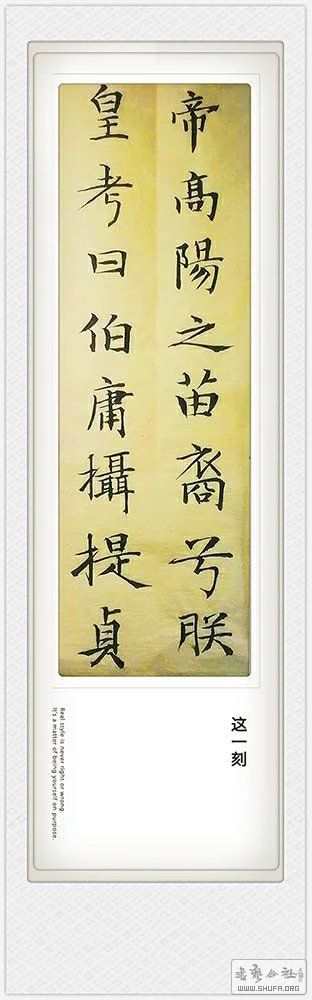 帝高陽之苗裔兮朕
皇考曰伯庸攝提貞
这一刻
Real style is never right or wrong
It's a matter of being yourself on purpose.
书法公社
WWW.SHUFA.ORG